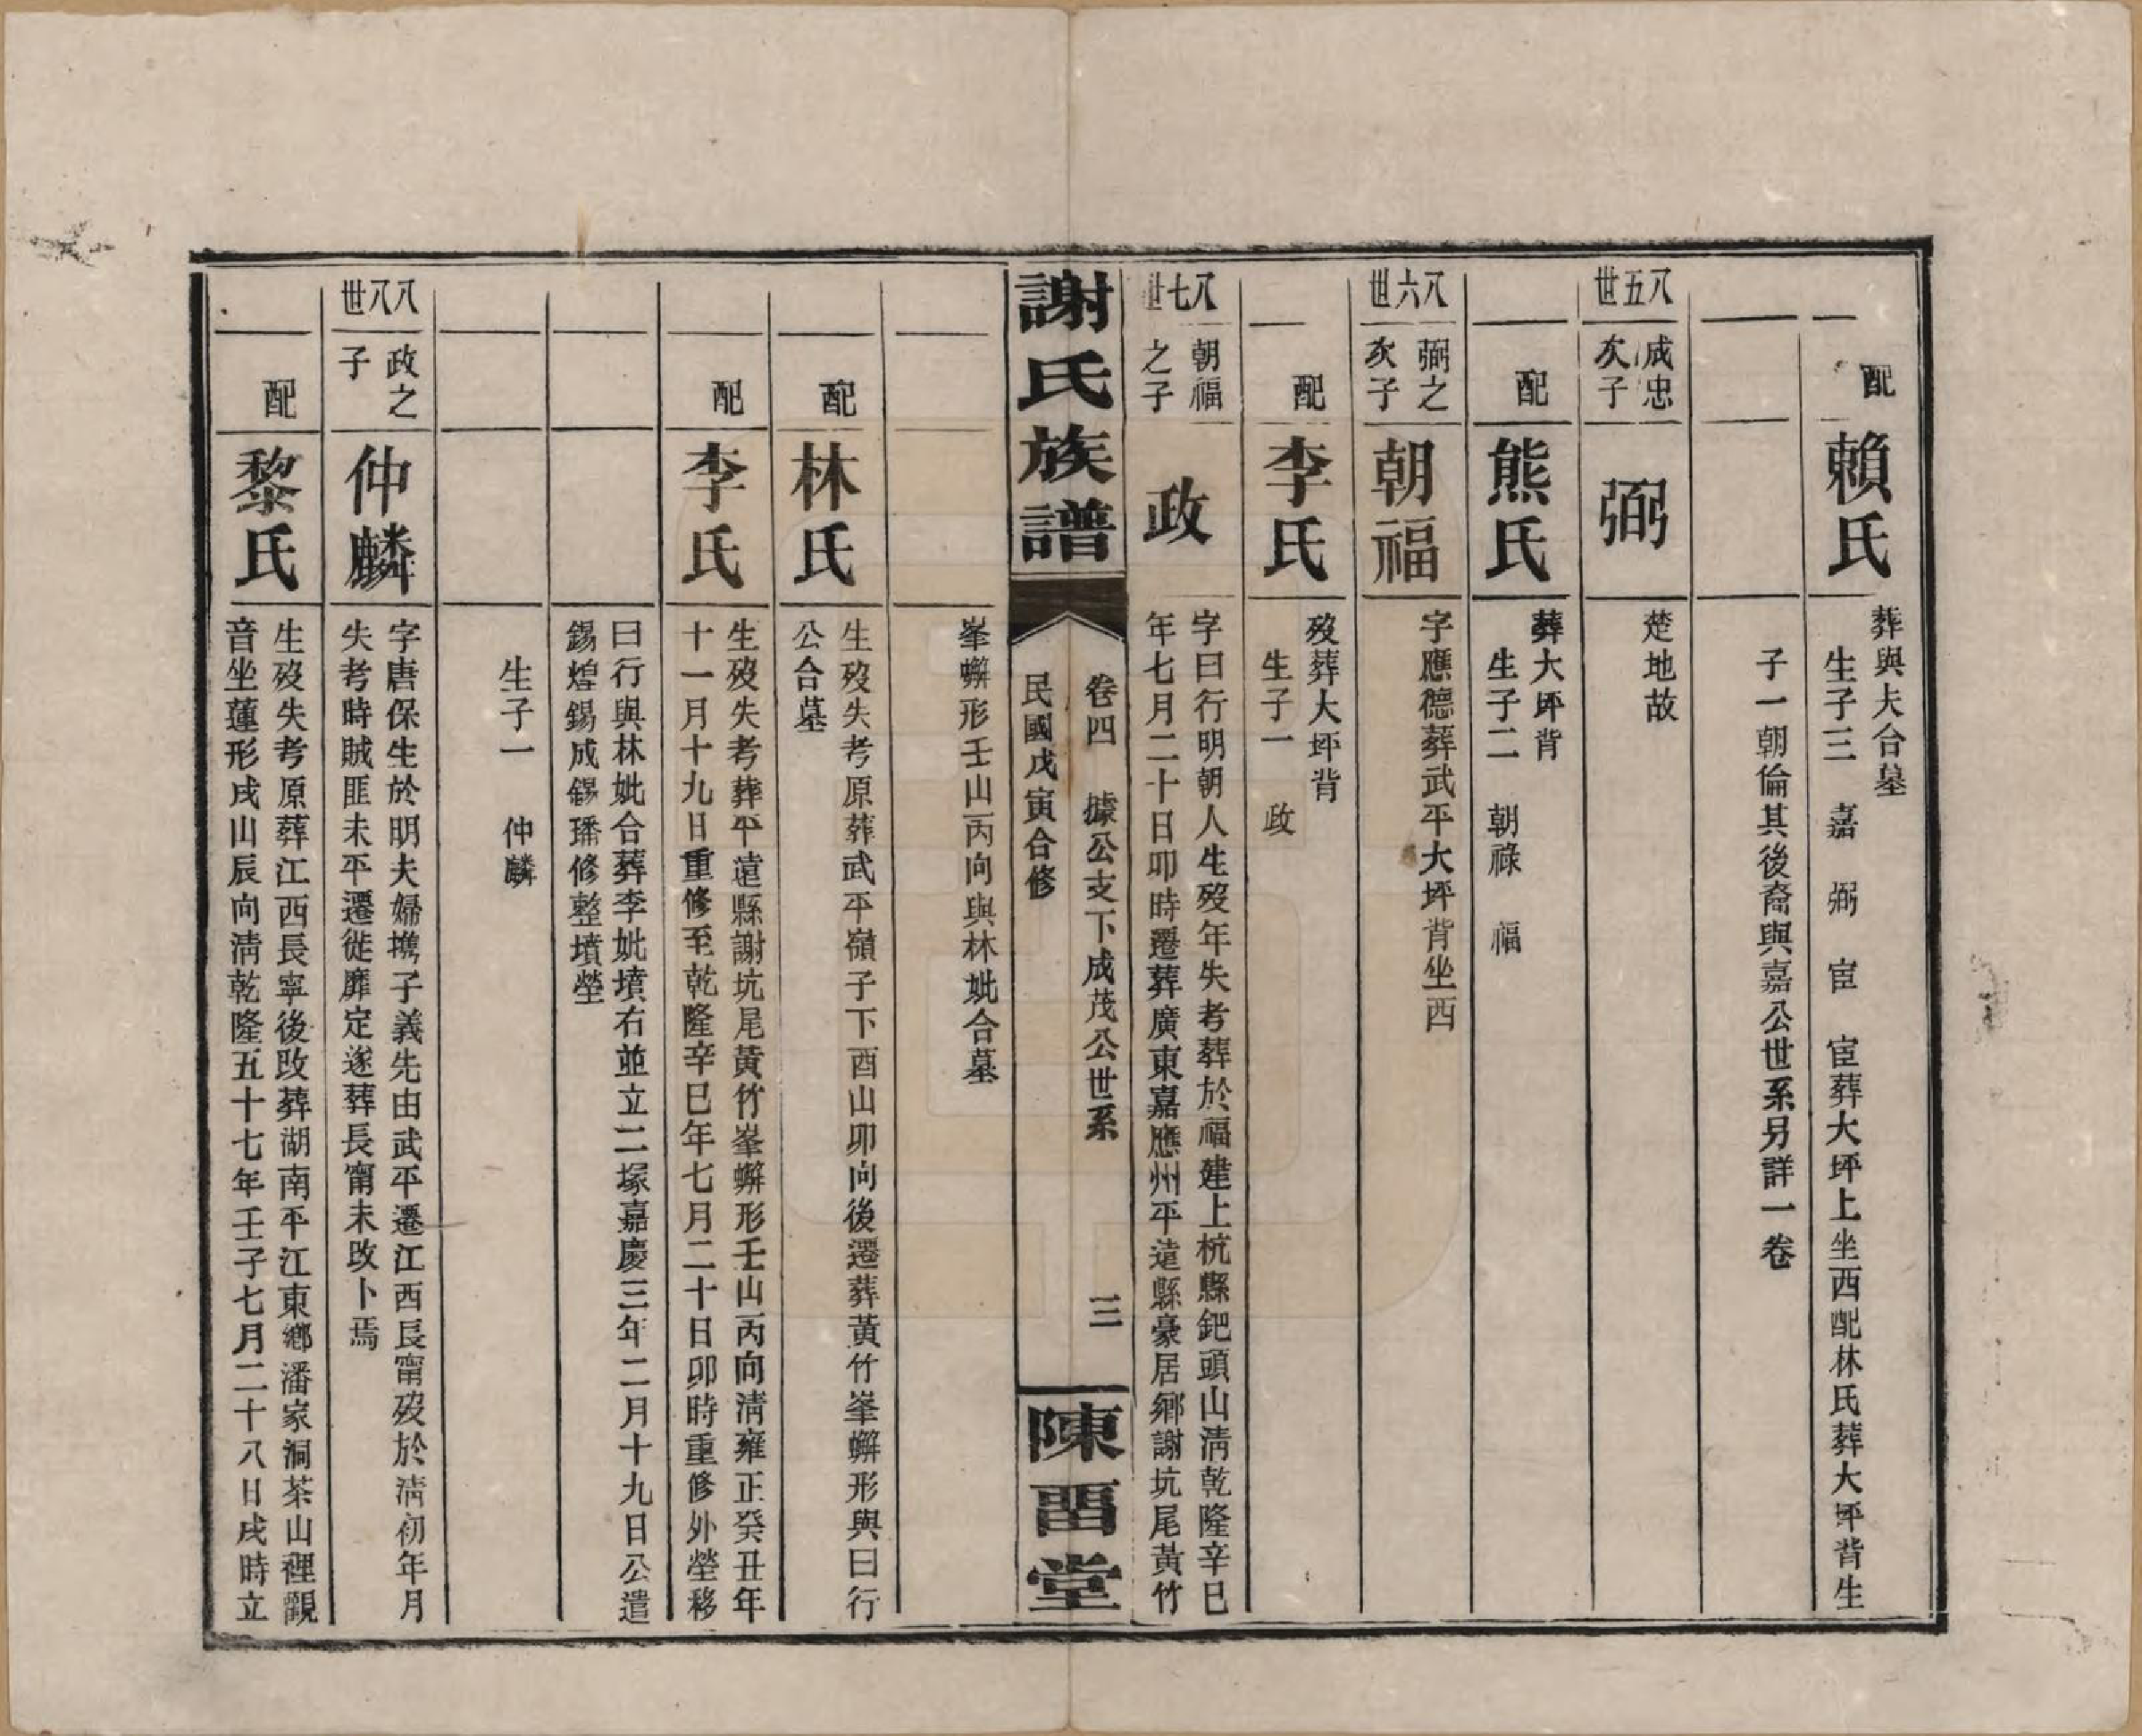 配
賴氏
葬與夫合墓
生子三　嘉　弼　宦　宦葬大坪上坐西配林氏葬大坪背生
子一朝倫其後裔與嘉公世系另詳一卷
八五世
成忠
次子
弼
楚地故
配
熊氏
葬大坪背
生子二　朝祿　福
八六世
弼之
次子
朝福
字應德葬武平大坪背坐西
配
李氏
歿葬大坪背
生子一　政
八七世
朝福
之子
政
字曰行明朝人生歿年失考葬於福建上杭縣鈀頭山淸乾隆辛巳
年七月二十日卯時遷葬廣東嘉應州平遠縣豪居鄉謝坑尾黃竹
謝氏族譜
卷四　據公支下成茂公世系　三
民國戊寅合修
陳畱堂
峯螃形壬山丙向與林妣合墓
配
林氏
生歿失考原葬武平嶺子下酉山卯向後遷葬黃竹峯螃形與曰行
公合墓
配
李氏
生歿失考葬平遠縣謝坑尾黃竹峯螃形壬山丙向淸雍正癸丑年
十一月十九日重修至乾隆辛巳年七月二十日卯時重修外塋移
曰行與林妣合葬李妣墳右並立二塚嘉慶三年二月十九日公遣
錫煌錫成錫璠修整墳塋
生子一　仲麟
八八世
政之
子
仲麟
字唐保生於明夫婦攜子義先由武平遷江西長甯歿於淸初年月
失考時賊匪未平遷徙靡定遂葬長甯未改卜焉
配
黎氏
生歿失考原葬江西長寧後改葬湖南平江東鄉潘家洞茶山裡觀
音坐蓮形戌山辰向淸乾隆五十七年壬子七月二十八日戌時立